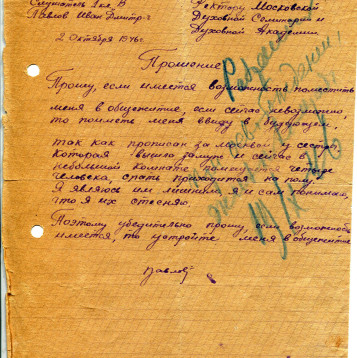 Слушатель 1 кл. В
Павлов Иван Дмитр-ч
2 октября 1946 г.
Ректору Московской
Духовной Семинарии и
Духовной Академии.
Прошение
Прошу, если имеется возможность поместить
меня в общежитие, если сейчас невозможно,
то поиметь меня ввиду в будующем,
так как прописан за Москвой у сестры,
которая вышла замуж и сейчас в
небольшой комнате помещается четыре
человека, спать приходится на полу.
Я являюсь им лишним, я и сам понимаю,
что я их стесняю.
Поэтому убедительно прошу, если возможность
имеется, то устройте меня в общежитие
Павлов